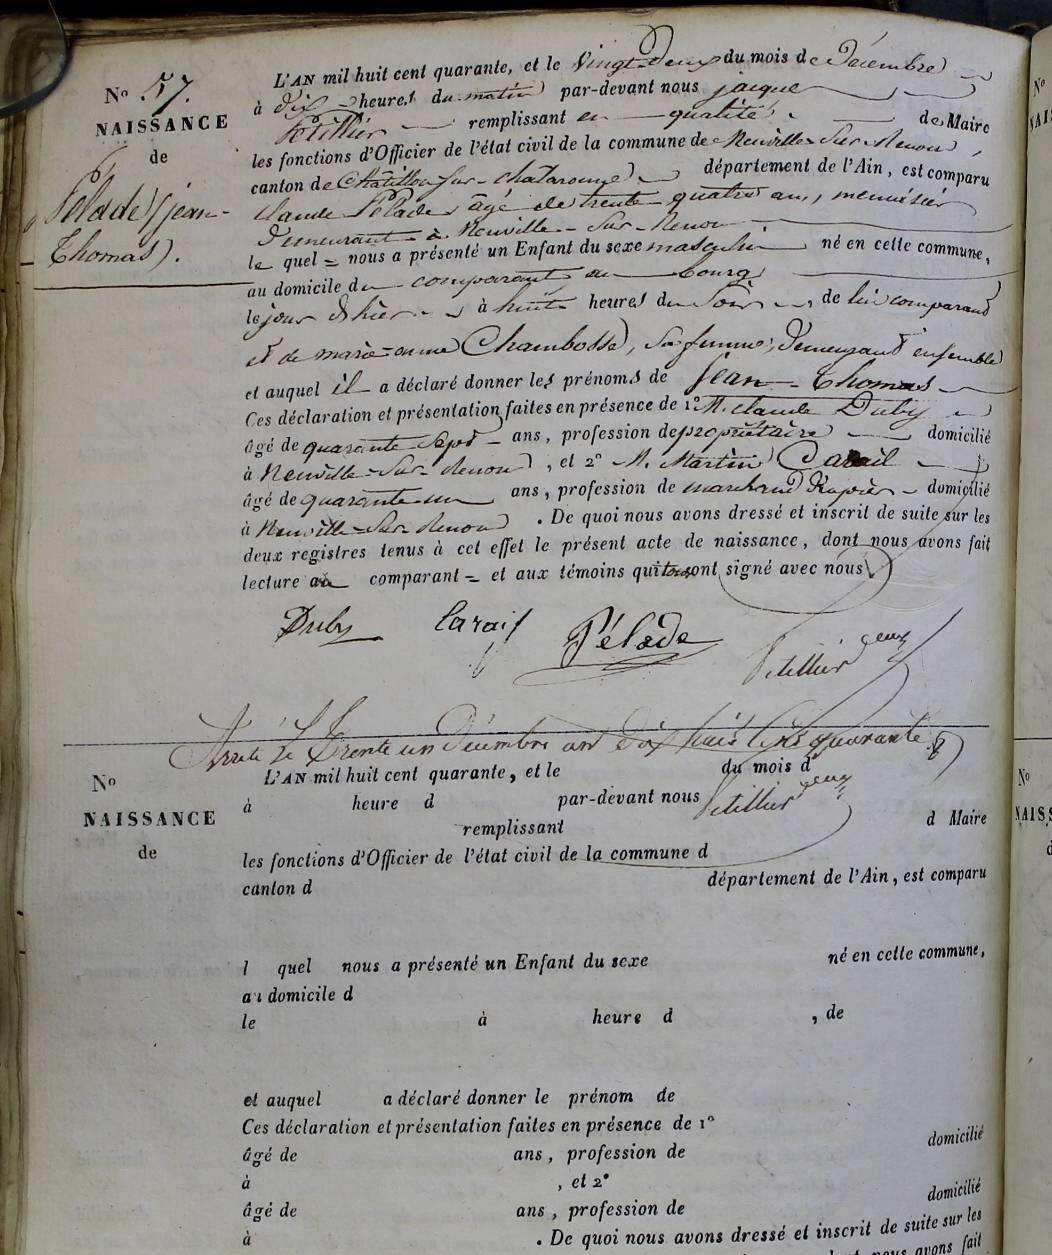 N° 57.
NAISSANCE
de
Pelade (jean-
Thomas).
L'AN mil huit cent quarante, et le Vingt-Deux du mois de Décembre
à dix heures du matin par-devant nous jacque
Petillier remplissant en qualité de Maire
les fonctions d'Officier de l'état civil de la commune de Neuville-Sur-Renon,
canton de Châtillon-sur-chalaronne département de l'Ain, est comparu
claude Pélade, âgé de trente quatre ans, menuisier
Demeurant à Neuville-Sur-Renon
le quel = nous a présenté un Enfant du sexe masculin né en cette commune,
au domicile du comparant au bourg
le jour d'hier à huit heures du Soir, de lui comparant
et de marie-anne Chambosse, sa femme, Demeurant ensemble
et auquel il a déclaré donner les prénoms de jean-Thomas
Ces déclaration et présentation faites en présence de 1° M. claude Duby
âgé de quarante sept ans, profession de propriétaire domicilié
à Neuville-Sur-Renon, et 2° M. Martin Carail
âgé de quarante-un ans, profession de marchand Drapier domicilié
à Neuville-Sur-Renon. De quoi nous avons dressé et inscrit de suite sur les
deux registres tenus à cet effet le présent acte de naissance, dont nous avons fait
lecture au comparant = et aux témoins qui tous ont signé avec nous
Duby Carail Pélade Petillier
Arrêté le Trente un Décembre an Dix huit Cent quarante
Petillier
N°
NAISSANCE
de
L'AN mil huit cent quarante, et le du mois d
à heure d par-devant nous
remplissant d Maire
les fonctions d'Officier de l'état civil de la commune d
canton d département de l'Ain, est comparu
l quel nous a présenté un Enfant du sexe né en cette commune,
au domicile d
le à heure d , de
et auquel a déclaré donner le prénom de
Ces déclaration et présentation faites en présence de 1°
âgé de ans, profession de domicilié
à , et 2°
âgé de ans, profession de domicilié
à . De quoi nous avons dressé et inscrit de suite sur les
nous avons fait
N°
NAIS